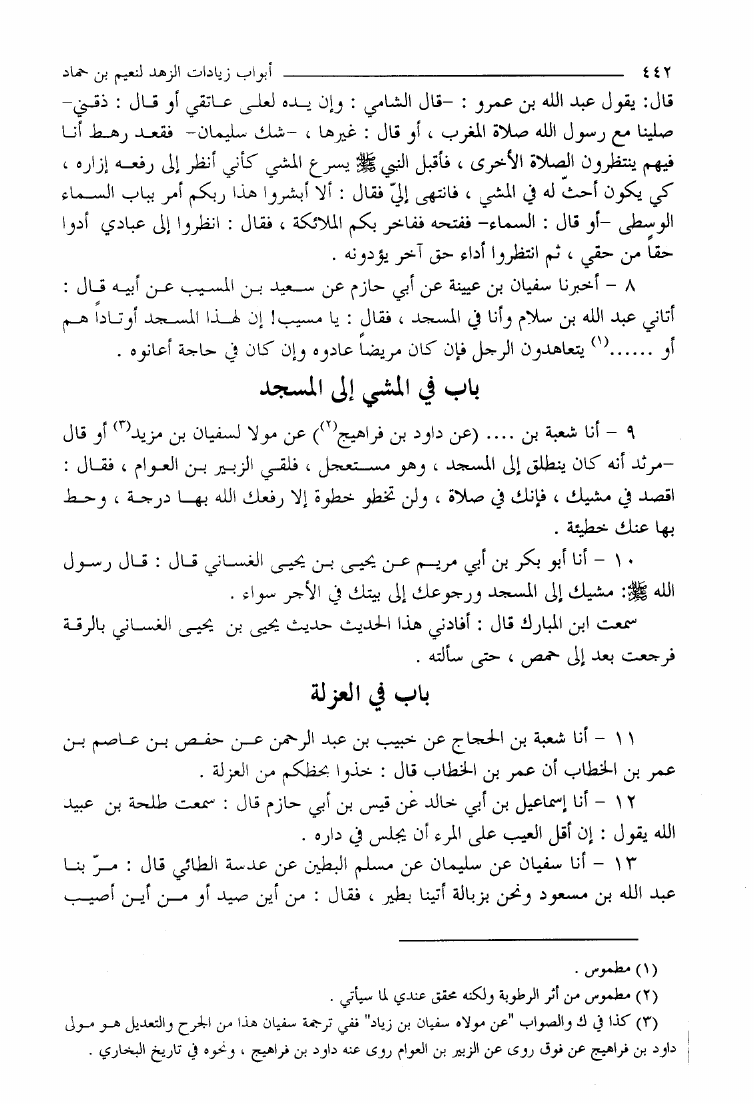 ٤٤٢ أبواب زيادات الزهد لنعيم بن حماد
قال: يقول عبد الله بن عمرو : -قال الشامي : وإن يده لعلى عاتقي أو قال : ذقني-
صلينا مع رسول الله صلاة المغرب ، أو قال : غيرها ، -شك سليمان- فقعد رهط أنا
فيهم ينتظرون الصلاة الأخرى ، فأقبل النبي ﷺ يسرع المشي كأني أنظر إلى رفعه إزاره ،
كي يكون أحثّ له في المشي ، فانتهى إليّ فقال : ألا أبشروا هذا ربكم أمر بباب السماء
الوسطى -أو قال : السماء- ففتحه ففاخر بكم الملائكة ، فقال : انظروا إلى عبادي أدوا
حقاً من حقي ، ثم انتظروا أداء حق آخر يؤدونه .
٨ - أخبرنا سفيان بن عيينة عن أبي حازم عن سعيد بن المسيب عن أبيه قال :
أتاني عبد الله بن سلام وأنا في المسجد ، فقال : يا مسيب! إن لهذا المسجد أوتاداً هم
أو ......(١) يتعاهدون الرجل فإن كان مريضاً عادوه وإن كان في حاجة أعانوه .
باب في المشي إلى المسجد
٩ - أنا شعبة بن .... (عن داود بن فراهيج(٢)) عن مولا لسفيان بن مزيد(٣) أو قال
-مرثد أنه كان ينطلق إلى المسجد ، وهو مستعجل ، فلقي الزبير بن العوام ، فقال :
اقصد في مشيك ، فإنك في صلاة ، ولن تخطو خطوة إلا رفعك الله بها درجة ، وحط
بها عنك خطيئة .
١٠ - أنا أبو بكر بن أبي مريم عن يحيى بن يحيى الغساني قال : قال رسول
الله ﷺ: مشيك إلى المسجد ورجوعك إلى بيتك في الأجر سواء .
سمعت ابن المبارك قال : أفادني هذا الحديث حديث يحيى بن يحيى الغساني بالرقة
فرجعت بعد إلى حمص ، حتى سألته .
باب في العزلة
١١ - أنا شعبة بن الحجاج عن خبيب بن عبد الرحمن عن حفص بن عاصم بن
عمر بن الخطاب أن عمر بن الخطاب قال : خذوا بحظكم من العزلة .
١٢ - أنا إسماعيل بن أبي خالد عن قيس بن أبي حازم قال : سمعت طلحة بن عبيد
الله يقول : إن أقل العيب على المرء أن يجلس في داره .
١٣ - أنا سفيان عن سليمان عن مسلم البطين عن عدسة الطائي قال : مرّ بنا
عبد الله بن مسعود ونحن بزبالة أتينا بطير ، فقال : من أين صيد أو من أين أصيب
(١) مطموس .
(٢) مطموس من أثر الرطوبة ولكنه محقق عندي لما سيأتي .
(٣) كذا في ك والصواب "عن مولاه سفيان بن زياد" ففي ترجمة سفيان هذا من الجرح والتعديل هو مولى
داود بن فراهيج عن فوق روى عن الزبير بن العوام روى عنه داود بن فراهيج ، ونحوه في تاريخ البخاري .